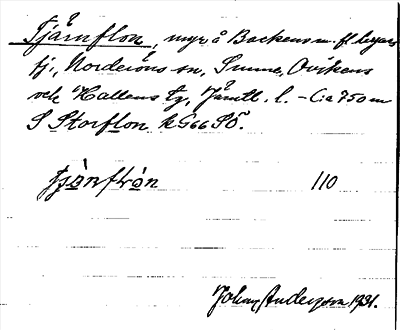 Tjärnflon, myr å Backens m. fl. byars
fj., Norderöns sn, Sunne, Ovikens
och Hallens tg, Jämtl. l. – Ca 750 m
S Storflon k G66 SÖ.
tjä̀nftrón 110
Johan Anderzon 1931.